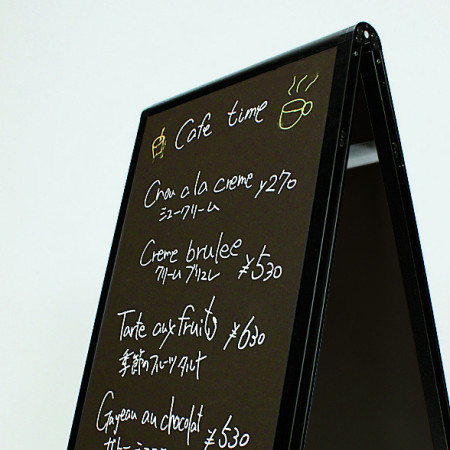 Cafe time
Chou a la creme ¥270
シュークリーム
Creme brulee ¥530
クリームブリュレ
Tarte aux fruits ¥630
季節のフルーツタルト
Gateau au chocolat ¥530